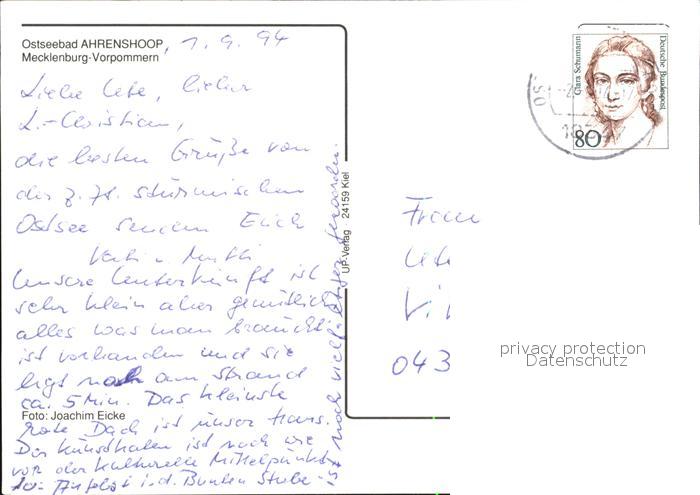 Ostseebad AHRENSHOOP, 1.9.94
Mecklenburg-Vorpommern
Liebe Ute, lieber
L.-Christian,
die besten Grüße von
der z.Zt. stürmischen
Ostsee senden Euch
Vati u. Mutti
Unsere Unterkunft ist
sehr klein aber gemütlich
alles was man braucht
ist vorhanden und sie
liegt nah am Strand
ca. 5 Min. Das kleinste
rote Dach ist unser Haus.
Foto: Joachim Eicke
Der Kunstkaten ist nach wie
vor der kulturelle Mittelpunkt
i.d. Bunten Stube
noch vielfältiger geworden.
UP-Verlag 24159 Kiel
Clara Schumann
Deutsche Bundespost
80
Frau
Ute
043
privacy protection
Datenschutz